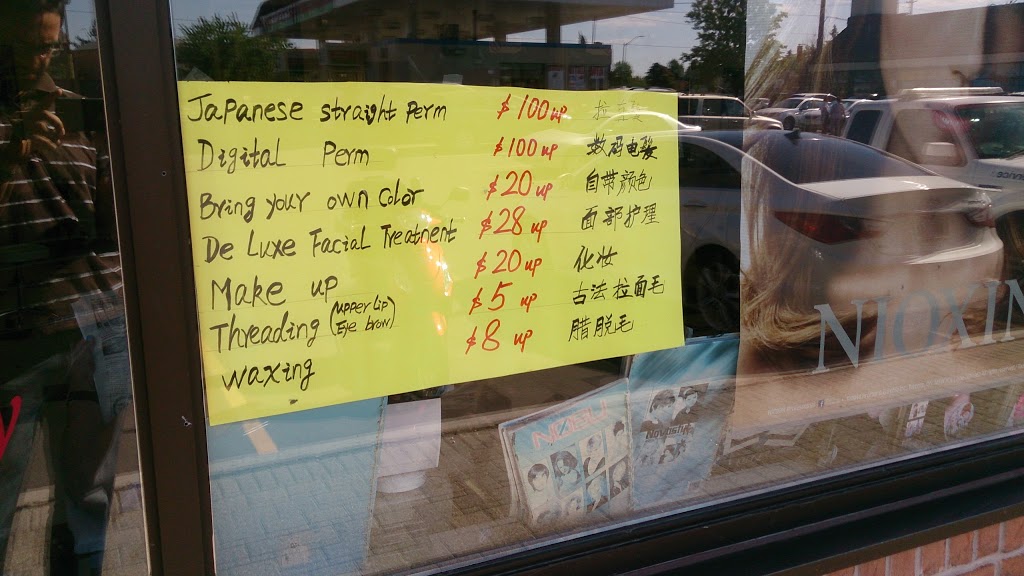 Japanese straight Perm $100 up
Digital Perm $100 up 数码电髮
Bring your own Color $20 up 自带颜色
De Luxe Facial Treatment $28 up 面部护理
Make up $20 up 化妆
Threading (upper lip Eye brow) $5 up 古法拉面毛
waxing $8 up 腊脱毛
NIOXIN
NOBU